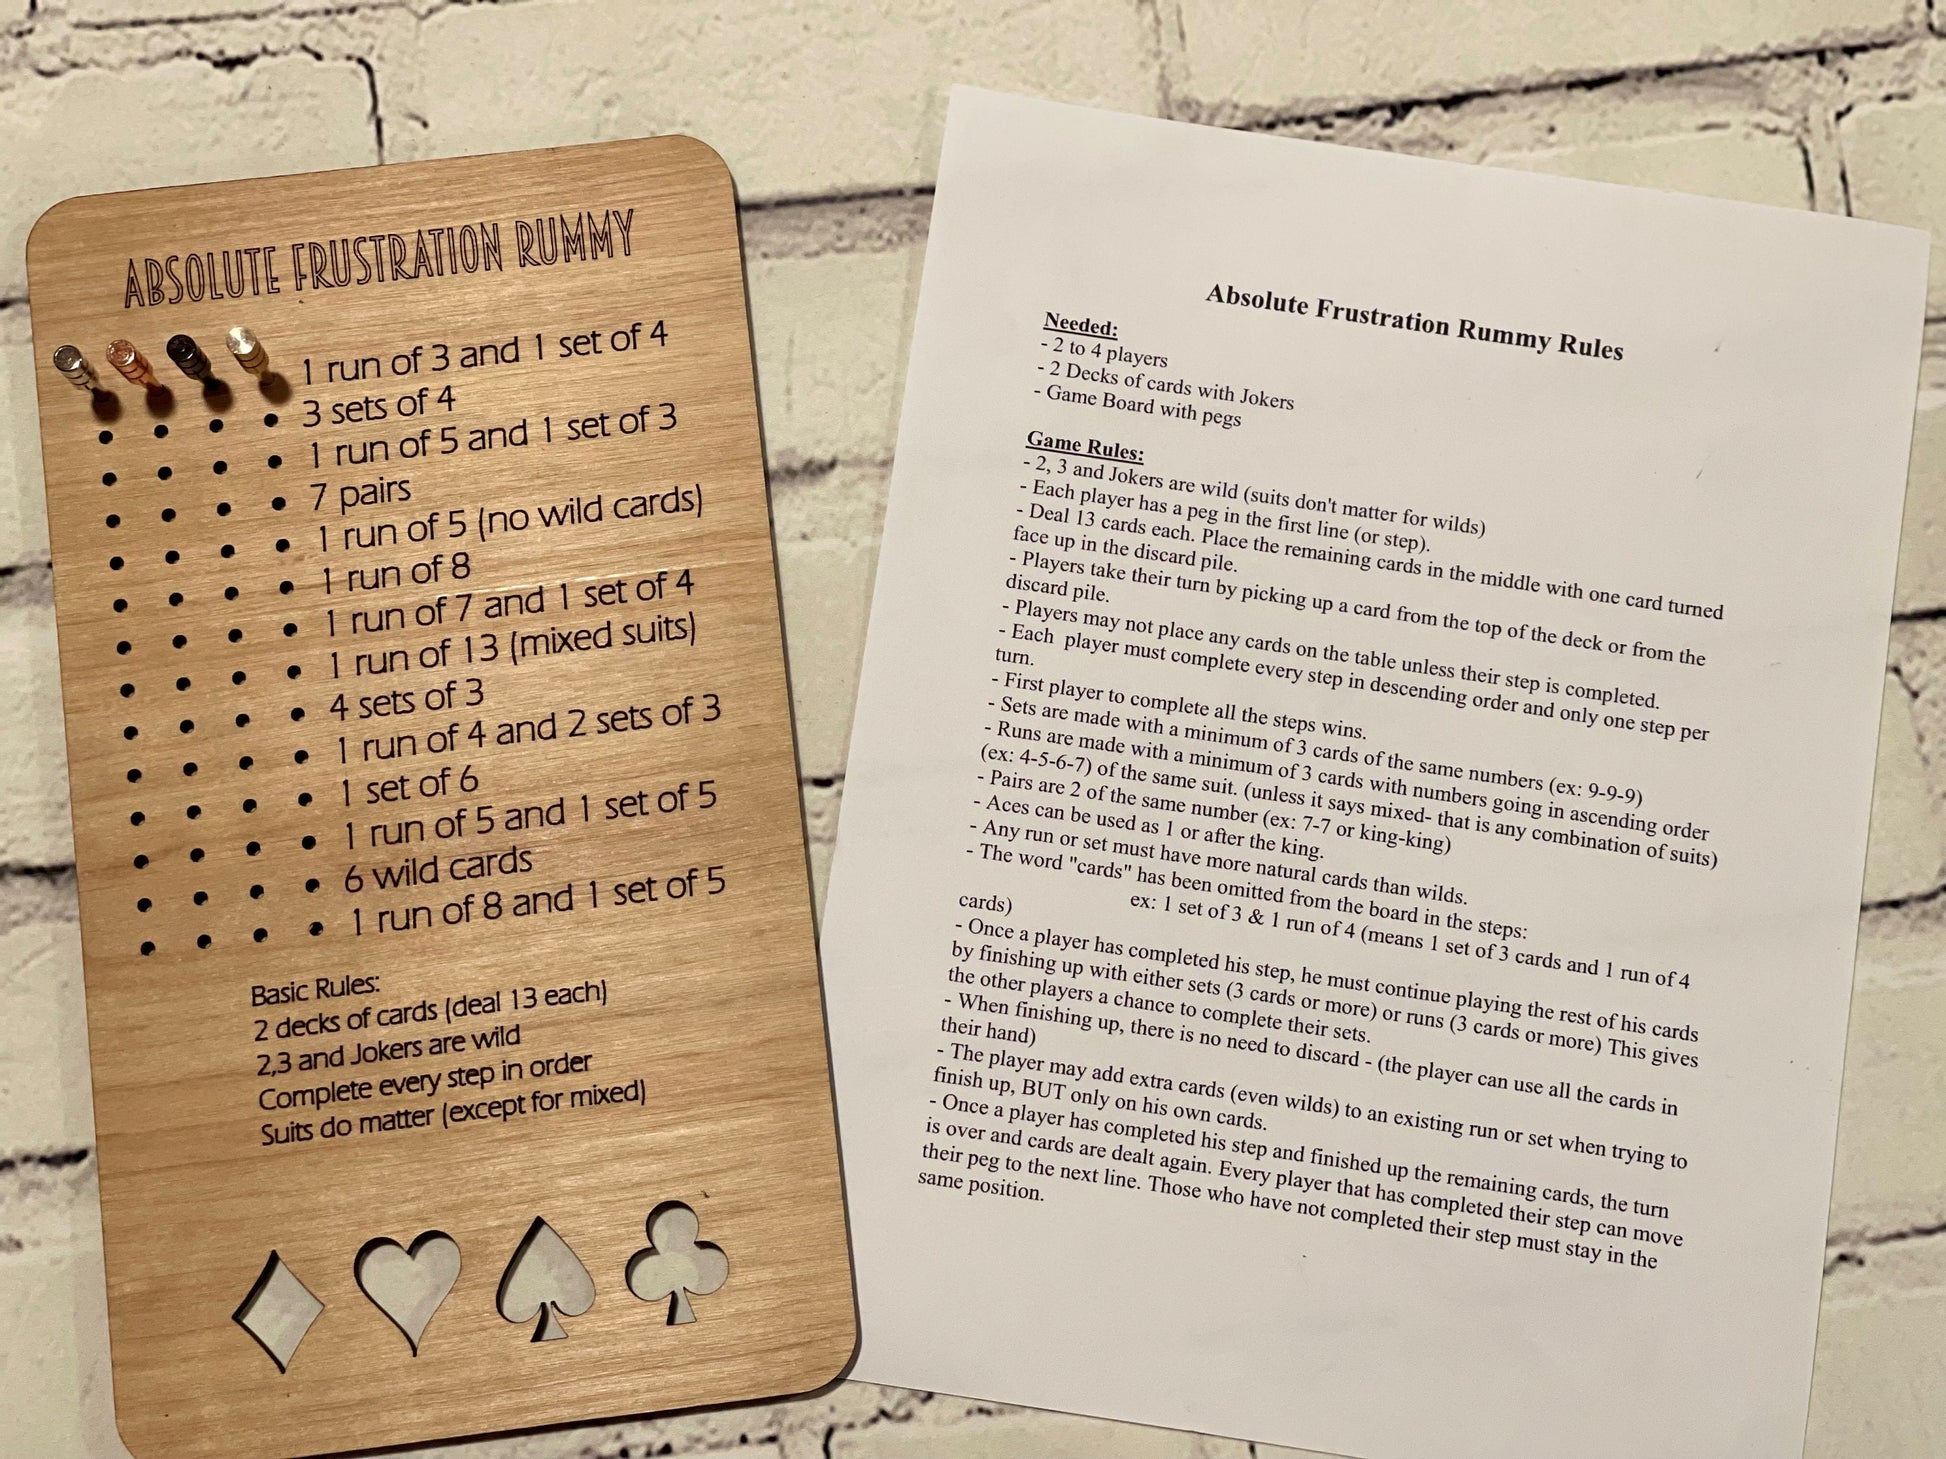 ABSOLUTE FRUSTRATION RUMMY
1 run of 3 and 1 set of 4
3 sets of 4
1 run of 5 and 1 set of 3
7 pairs
1 run of 5 (no wild cards)
1 run of 8
1 run of 7 and 1 set of 4
1 run of 13 (mixed suits)
4 sets of 3
1 run of 4 and 2 sets of 3
1 set of 6
1 run of 5 and 1 set of 5
6 wild cards
1 run of 8 and 1 set of 5
Basic Rules:
2 decks of cards (deal 13 each)
2,3 and Jokers are wild
Complete every step in order
Suits do matter (except for mixed)
Absolute Frustration Rummy Rules
Needed:
- 2 to 4 players
- 2 Decks of cards with Jokers
- Game Board with pegs
Game Rules:
- 2, 3 and Jokers are wild (suits don't matter for wilds)
- Each player has a peg in the first line (or step).
- Deal 13 cards each. Place the remaining cards in the middle with one card turned
face up in the discard pile.
- Players take their turn by picking up a card from the top of the deck or from the
discard pile.
- Players may not place any cards on the table unless their step is completed.
- Each player must complete every step in descending order and only one step per
turn.
- First player to complete all the steps wins.
- Sets are made with a minimum of 3 cards of the same numbers (ex: 9-9-9)
- Runs are made with a minimum of 3 cards with numbers going in ascending order
(ex: 4-5-6-7) of the same suit. (unless it says mixed- that is any combination of suits)
- Pairs are 2 of the same number (ex: 7-7 or king-king)
- Aces can be used as 1 or after the king.
- Any run or set must have more natural cards than wilds.
- The word "cards" has been omitted from the board in the steps:
ex: 1 set of 3 & 1 run of 4 (means 1 set of 3 cards and 1 run of 4
cards)
- Once a player has completed his step, he must continue playing the rest of his cards
by finishing up with either sets (3 cards or more) or runs (3 cards or more) This gives
the other players a chance to complete their sets.
- When finishing up, there is no need to discard - (the player can use all the cards in
their hand)
- The player may add extra cards (even wilds) to an existing run or set when trying to
finish up, BUT only on his own cards.
- Once a player has completed his step and finished up the remaining cards, the turn
is over and cards are dealt again. Every player that has completed their step can move
their peg to the next line. Those who have not completed their step must stay in the
same position.